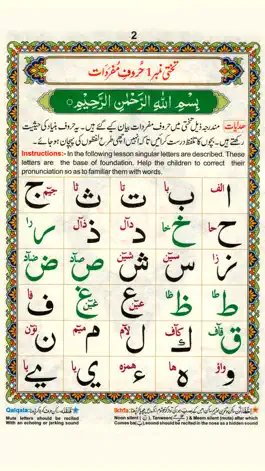 2
تختی نمبر 1 حروفِ مفردات
بِسْمِ اللّٰهِ الرَّحْمٰنِ الرَّحِيْمِ
ھدایات:- مندرجہ ذیل تختی میں حروف مفردات بیان کیے گئے ہیں۔ یہ حروف بنیاد کی حیثیت
رکھتے ہیں۔ بچوں کا تلفظ درست کرائیں تاکہ انہیں اچھی طرح لفظوں کی پہچان ہو جائے۔
Instructions:- In the following lesson singular letters are described. These
letters are the base of foundation. Help the children to correct their
pronunciation so as to familiar them with words.
الف با تا ثا جیم
ا ب ت ث ج
حا خا دال ذال را
ح خ د ذ ر
زا سین شین صاد ضاد
ز س ش ص ض
طا ظا عین غین فا
ط ظ ع غ ف
قاف کاف لام میم نون
ق ک ل م ن
واو ها همزه یا یا
و ه ء ی ے
Qalqala:
Mute letters should be recited
With an echoing or jerking sound
Ikhfa:
Noon silent ( ن ), Tanween( ) & Meem silent (mute) after which
Comes ba(ب) sound should be recited in the nose as a hidden sound